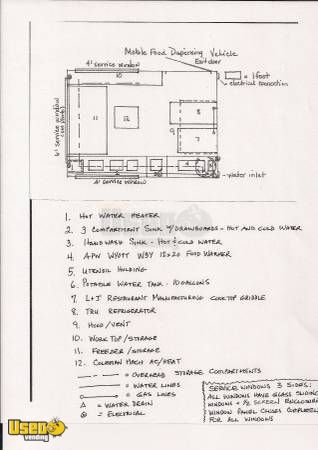 Mobile Food Dispensing Vehicle
4' service window
Exit door
= 1 foot
electrical connection
10
6' service window
11
12
8
9
7
4
6' service window
water inlet
1. HOT WATER HEATER
2. 3 COMPARTMENT SINK W/DRAINBOARDS - HOT AND COLD WATER
3. HANDWASH SINK - HOT & COLD WATER
4. APW WYOTT W3V 12x20 FOOD WARMER
5. UTENSIL HOLDING
6. POTABLE WATER TANK - 10 GALLONS
7. L&J RESTAURANT MANUFACTURING COOKTOP GRIDDLE
8. TRU REFRIGERATOR
9. HOOD/VENT
10. WORK TOP/STORAGE
11. FREEZER/STORAGE
12. COLEMAN MACH AC/HEAT
= OVERHEAD STORAGE COMPARTMENTS
= WATER LINES
= GAS LINES
△ = WATER DRAIN
= ELECTRICAL
SERVICE WINDOWS 3 SIDES:
ALL WINDOWS HAVE GLASS SLIDING
WINDOWS + 1/2 SCREEN ENCLOSURE
WINDOW PANEL CLOSES COMPLETELY
FOR ALL WINDOWS
Used
vending